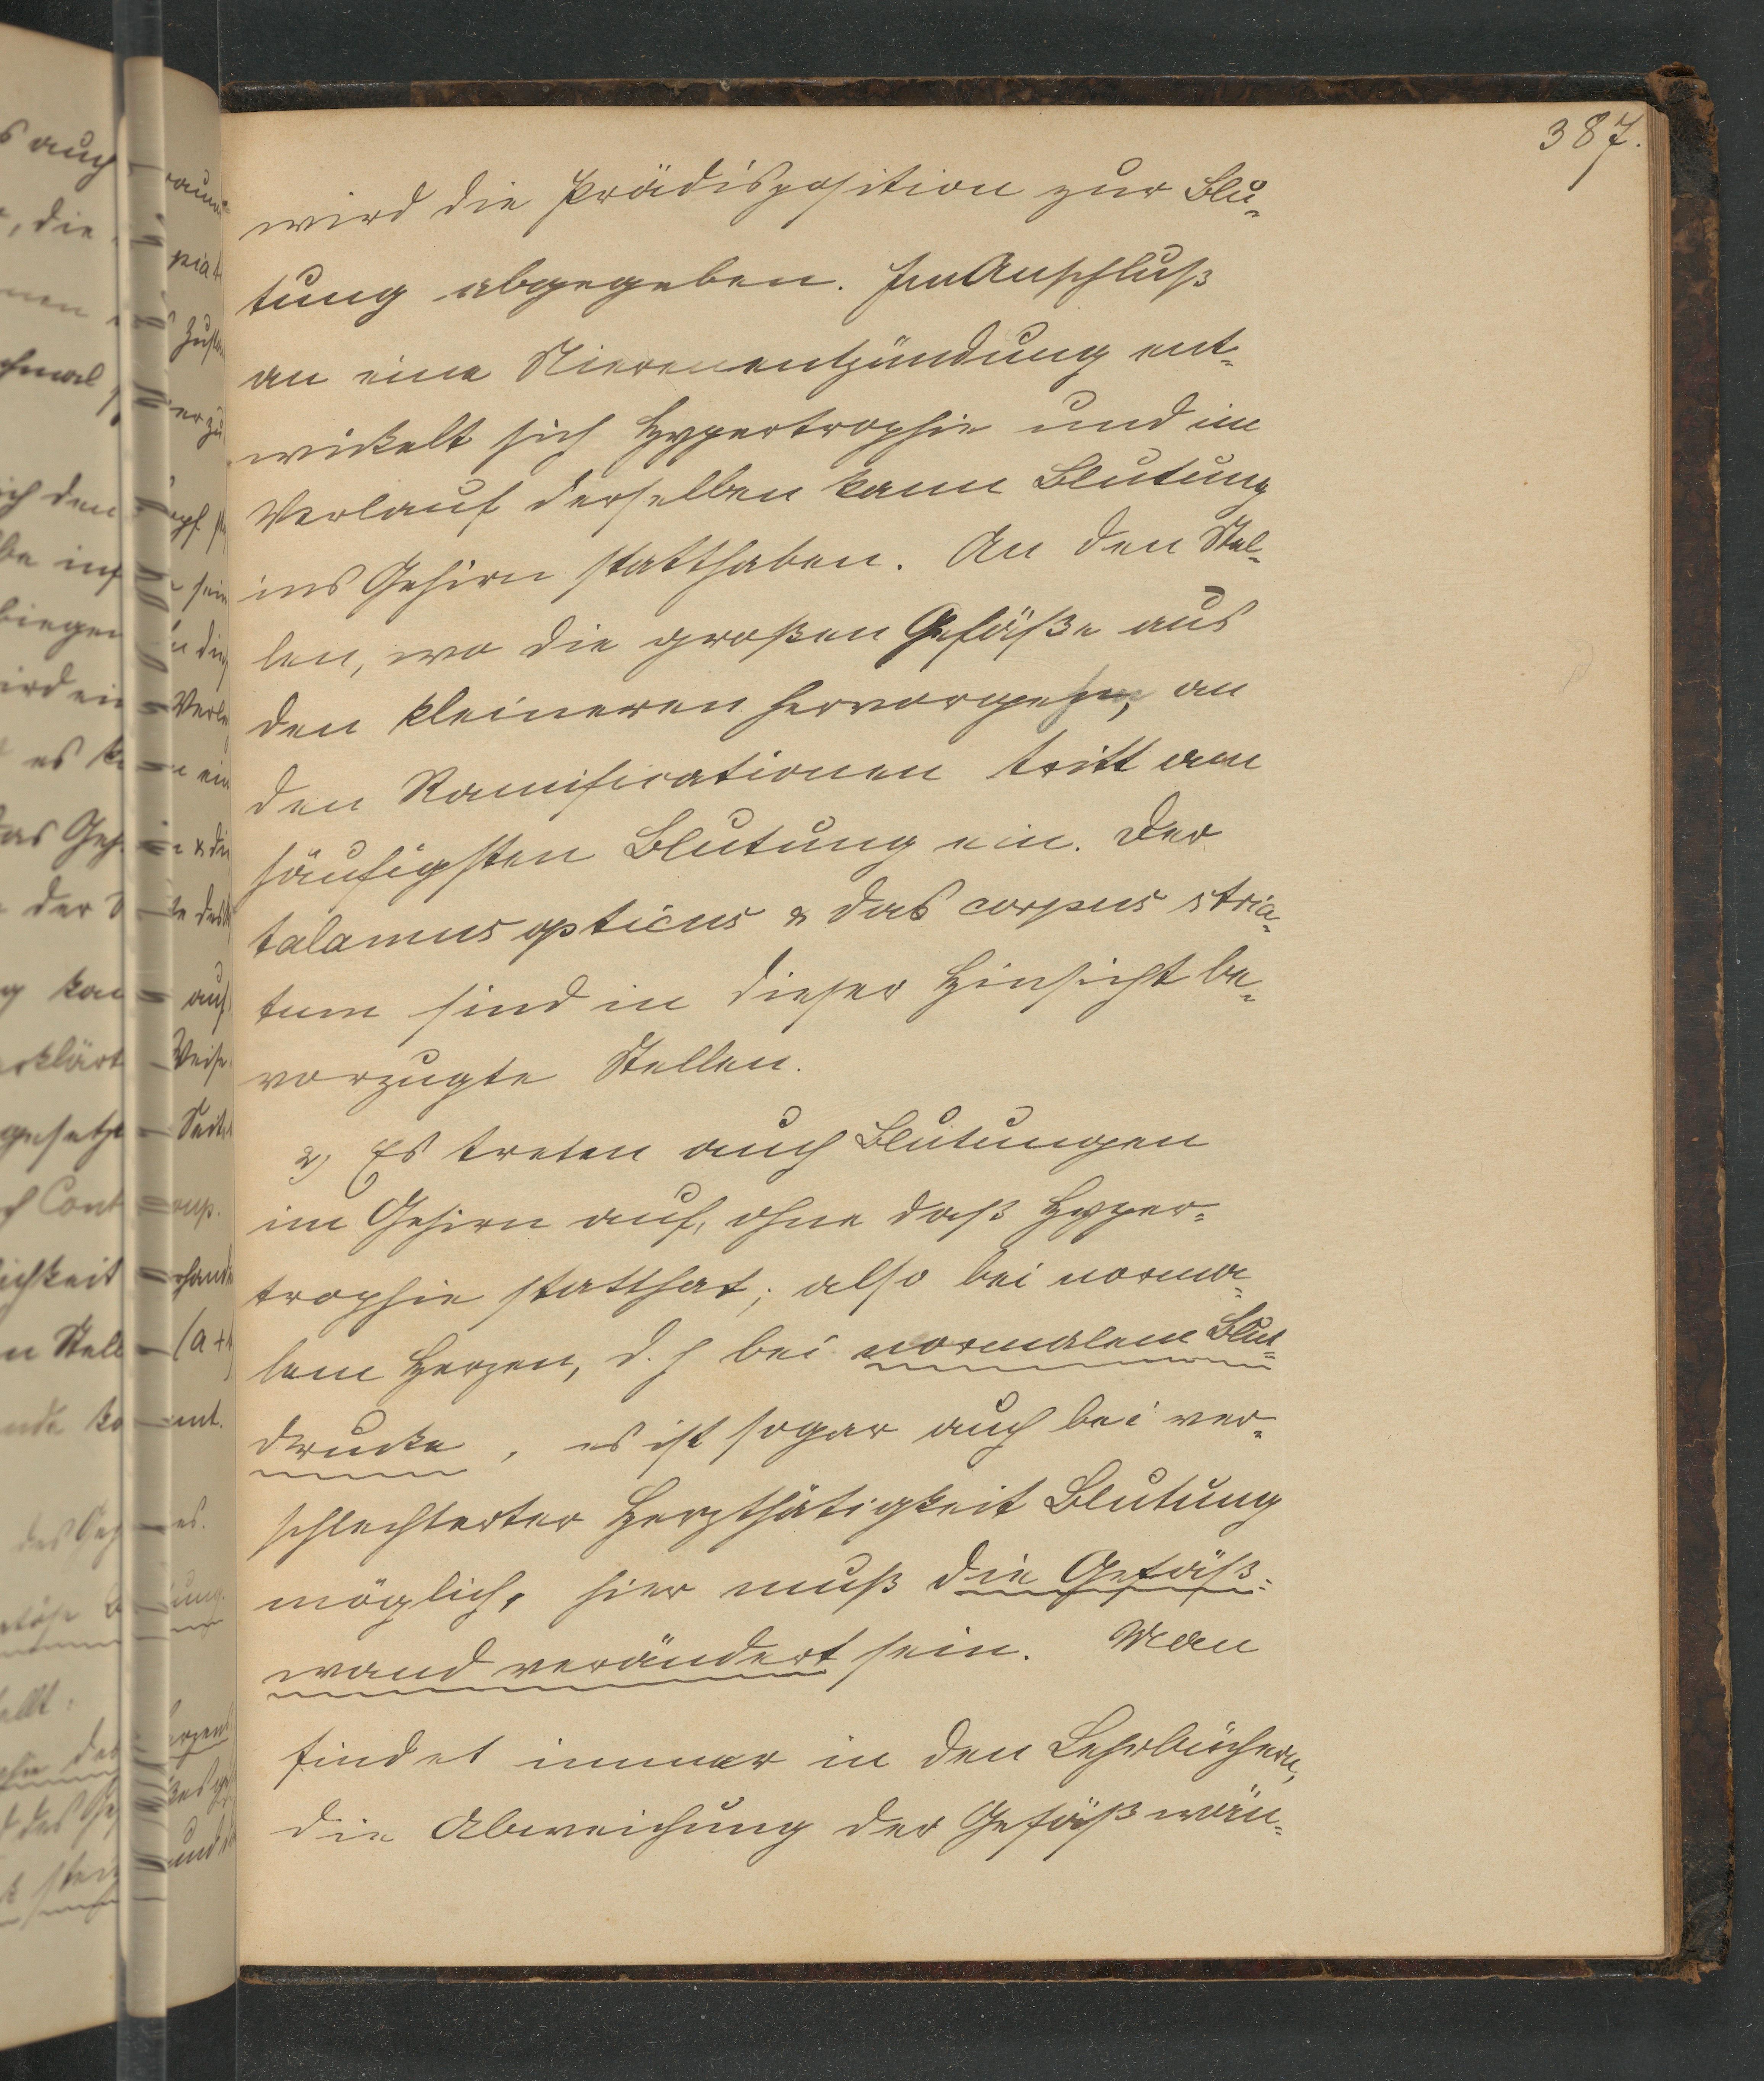 387.
wird die Prädisposition zur Blu-
tung abgegeben. Im Anschluß
an eine Nierenentzündung ent-
wickelt sich Hypertrophie und im
Verlauf derselben kann Blutung
ins Gehirn statthaben. An den Stel-
len, wo die großen Gefäße aus
den kleineren hervorgehen, an
den Ramificationen tritt am
häufigsten Blutung ein. Der
talamus opticus & das corpus stria-
tum sind in dieser Hinsicht be-
vorzugte Stellen.
2) Es treten auch Blutungen
im Gehirn auf, ohne daß Hyper-
trophie statthat; also bei norma-
lem Herzen, d. h bei normalem Blut-
drucke, es ist sogar auch bei ver-
schlechterter Herzthätigkeit Blutung
möglich, hier muß die Gefäß-
wand verändert sein. Man
findet immer in den Lehrbüchern,
die Abweichung der Gefäßwän-